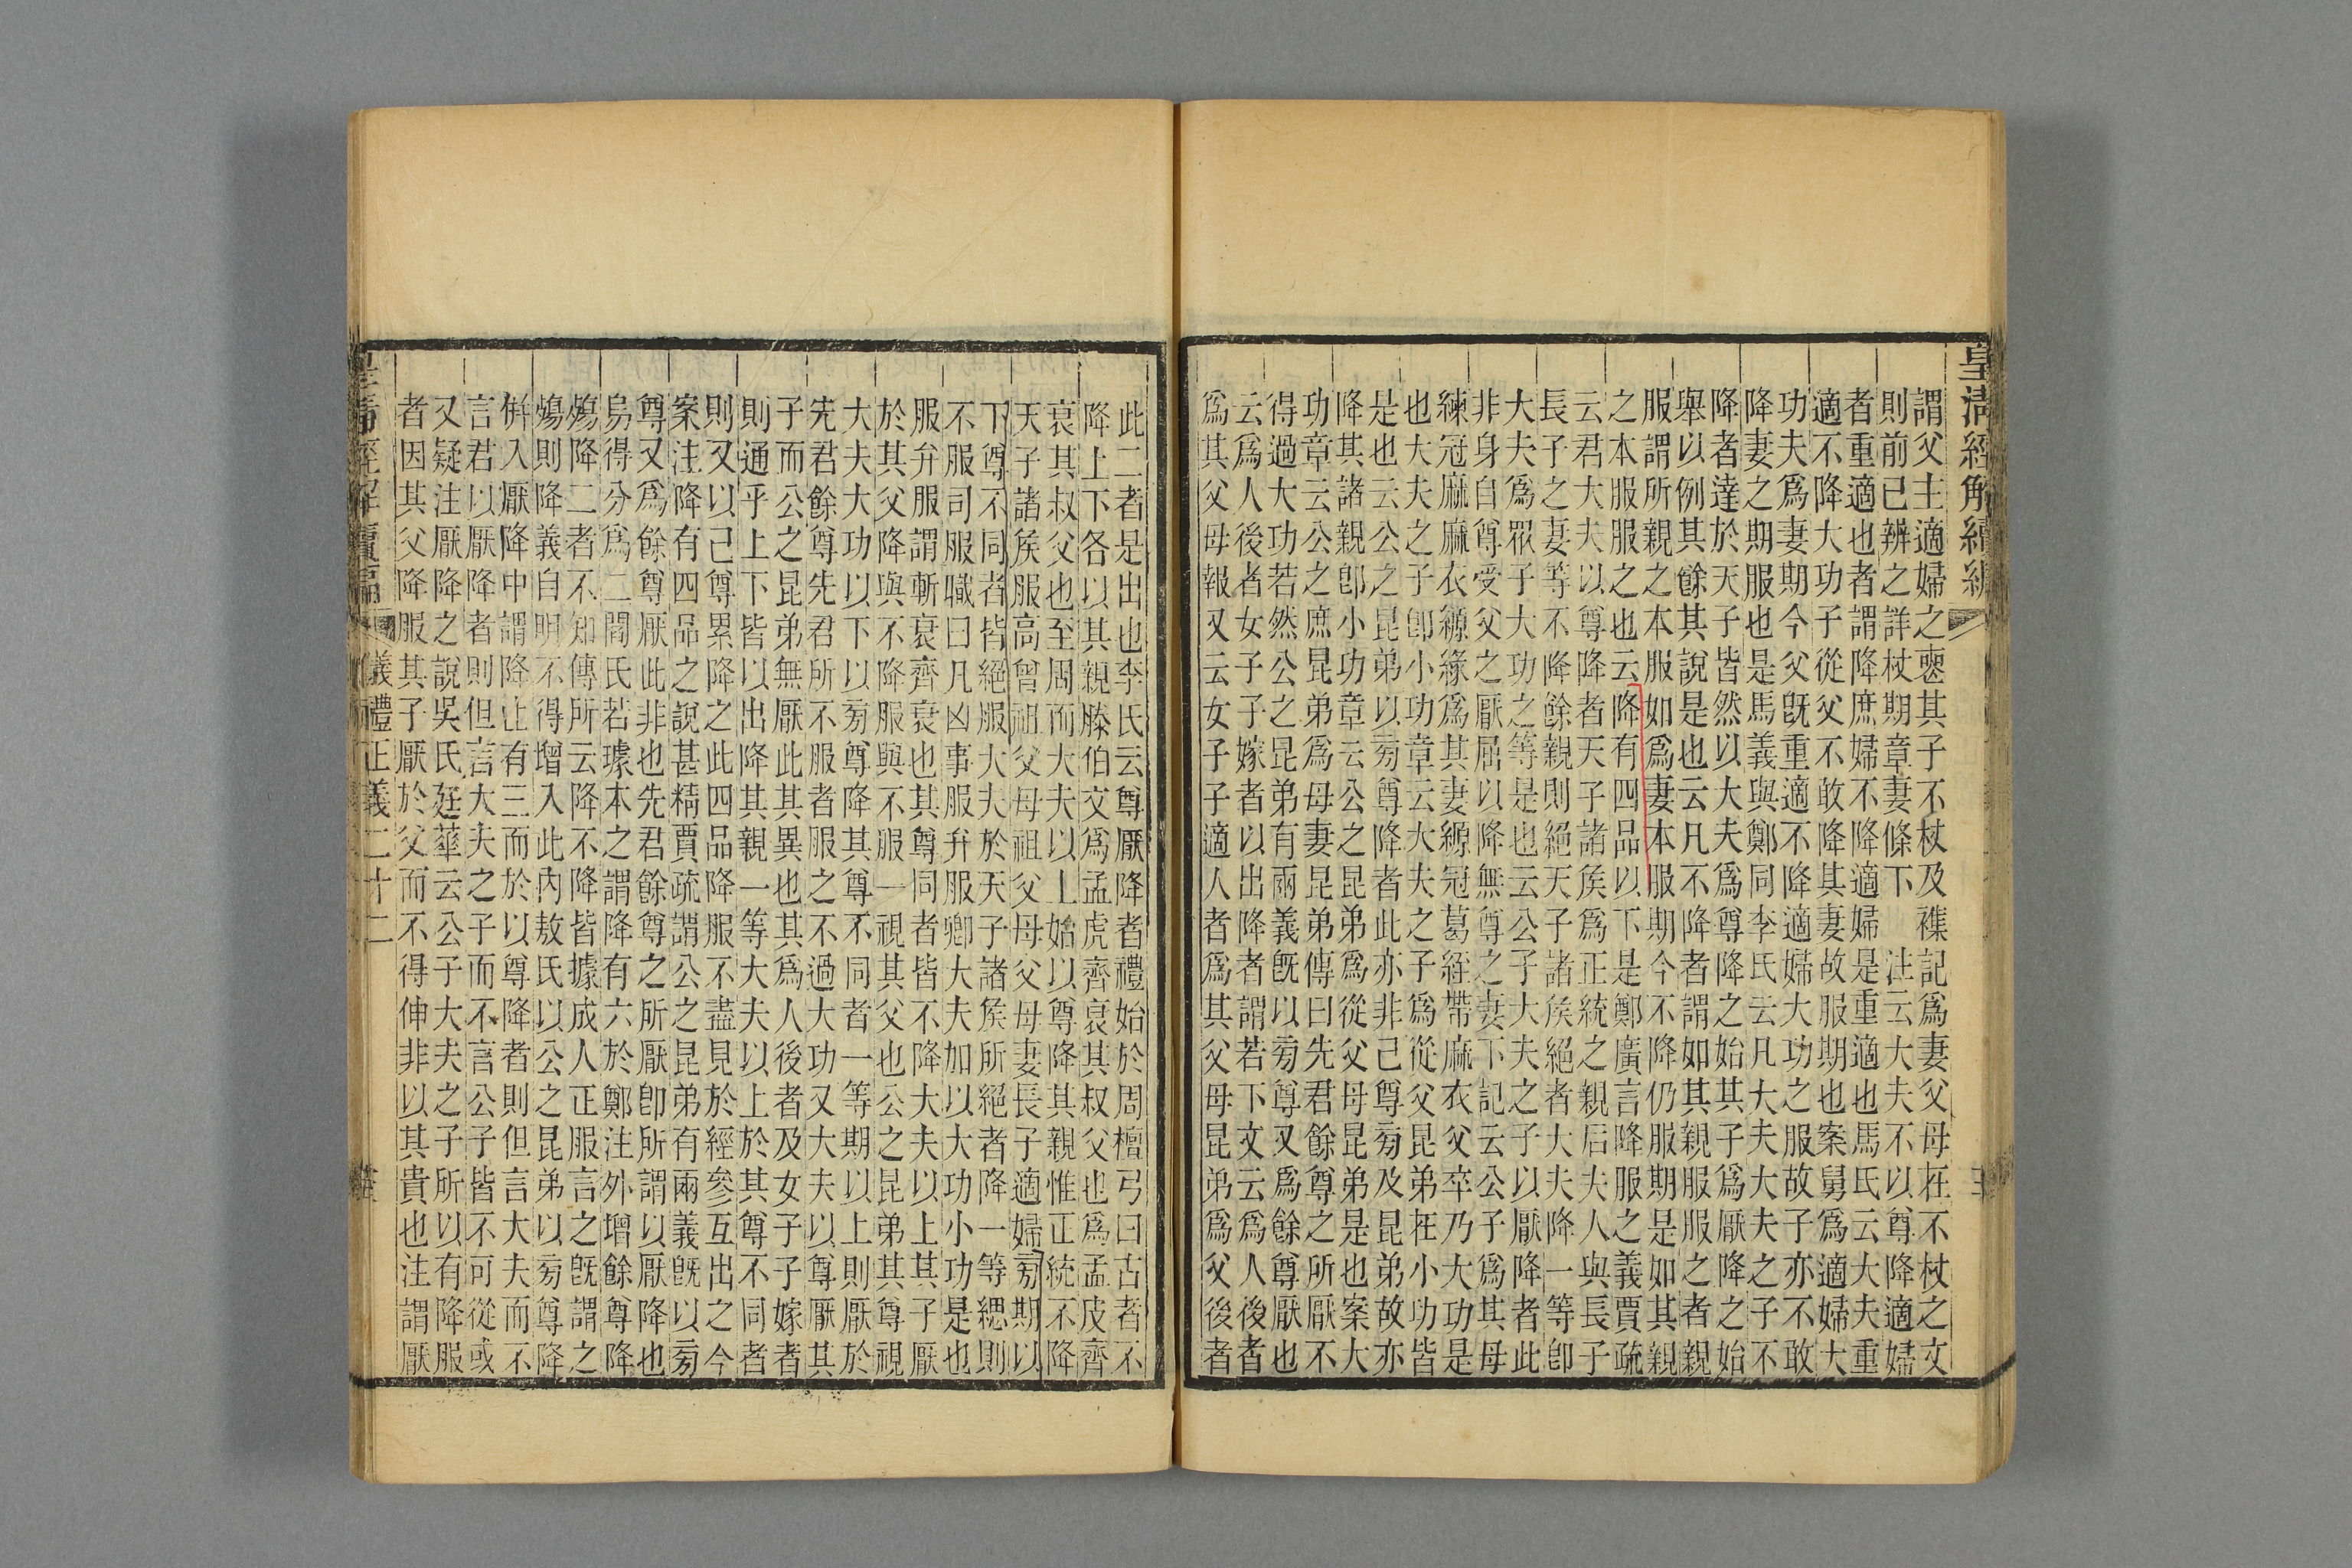 皇清經解續編
謂父主適婦之喪其子不杖及襍記爲妻父母在不杖之文
則前已辨之詳杖期章妻條下　注云大夫不以尊降適婦
者重適也者謂降庶婦不降適婦是重適也馬氏云大夫重
適不降大功子從父不敢降其妻故服期也案舅爲適婦大
功夫爲妻期今父旣重適不降適婦大功之服故子亦不敢
降妻之期服也是馬義與鄭同李氏云凡大夫大夫之子不
降者達於天子皆然以大夫爲尊降之始其子爲厭降之始
舉以例其餘其說是也云凡不降者謂如其親服服之者親
服謂所親之本服如爲妻本服期今不降仍服期是如其親
之本服服之也云降有四品以下是鄭廣言降服之義賈疏
云君大夫以尊降者天子諸矦爲正統之親后夫人與長子
長子之妻等不降餘親則絕天子諸矦絕者大夫降一等卽
大夫爲眾子大功之等是也云公子大夫之子以厭降者此
非身自尊受父之厭屈以降無尊之妻下記云公子爲其母
練冠麻麻衣縓緣爲其妻縓冠葛絰帶麻衣父卒乃大功是
也大夫之子卽小功章云大夫之子爲從父昆弟在小功皆
是也云公之昆弟以㫄尊降者此亦非己尊㫄及昆弟故亦
降其諸親卽小功章云公之昆弟爲從父母昆弟是也案大
功章云公之庶昆弟爲母妻昆弟傳曰先君餘尊之所厭不
得過大功若然公之昆弟有兩義旣以㫄尊又爲餘尊厭也
云爲人後者女子子嫁者以出降者謂若下文云爲人後者
爲其父母報又云女子子適人者爲其父母昆弟爲父後者
此二者是出也李氏云尊厭降者禮始於周檀弓曰古者不
降上下各以其親滕伯文爲孟虎齊衰其叔父也爲孟皮齊
衰其叔父也至周而大夫以上始以尊降其親惟正統不降
天子諸矦服高曾祖父母祖父母父母妻長子適婦㫄期以
下尊不同者皆絕服大夫於天子諸矦所絕者降一等緦則
不服司服職曰凡凶事服弁服卿大夫加以大功小功是也
服弁服謂斬衰齊衰也其尊同者皆不降大夫以上其子厭
於其父降與不降服與不服一視其父也公之昆弟其尊視
大夫大功以下以㫄尊降其尊不同者一等期以上則厭於
先君餘尊先君所不服者服之不過大功又大夫以尊厭其
子而公之昆弟無厭此其異也其爲人後者及女子子嫁者
則通乎上下皆以出降其親一等大夫以上於其尊不同者
則又以己尊累降之此四品降服不盡見於經參互出之今
案注降有四品之說甚精賈疏謂公之昆弟有兩義旣以㫄
尊又爲餘尊厭此非也先君餘尊之所厭卽所謂以厭降也
烏得分爲二閻氏若璩本之謂降有六於鄭注外增餘尊降
殤降二者不知傳所云降不降皆據成人正服言之旣謂之
殤則降義自明不得增入此內敖氏以公之昆弟以㫄尊降
倂入厭降中謂降止有三而於以尊降者則但言大夫而不
言君以厭降者則但言大夫之子而不言公子皆不可從或
又疑注厭降之說吳氏廷華云公子大夫之子所以有降服
者因其父降服其子厭於父而不得伸非以其貴也注謂厭
皇清經解續編
儀禮正義二十二